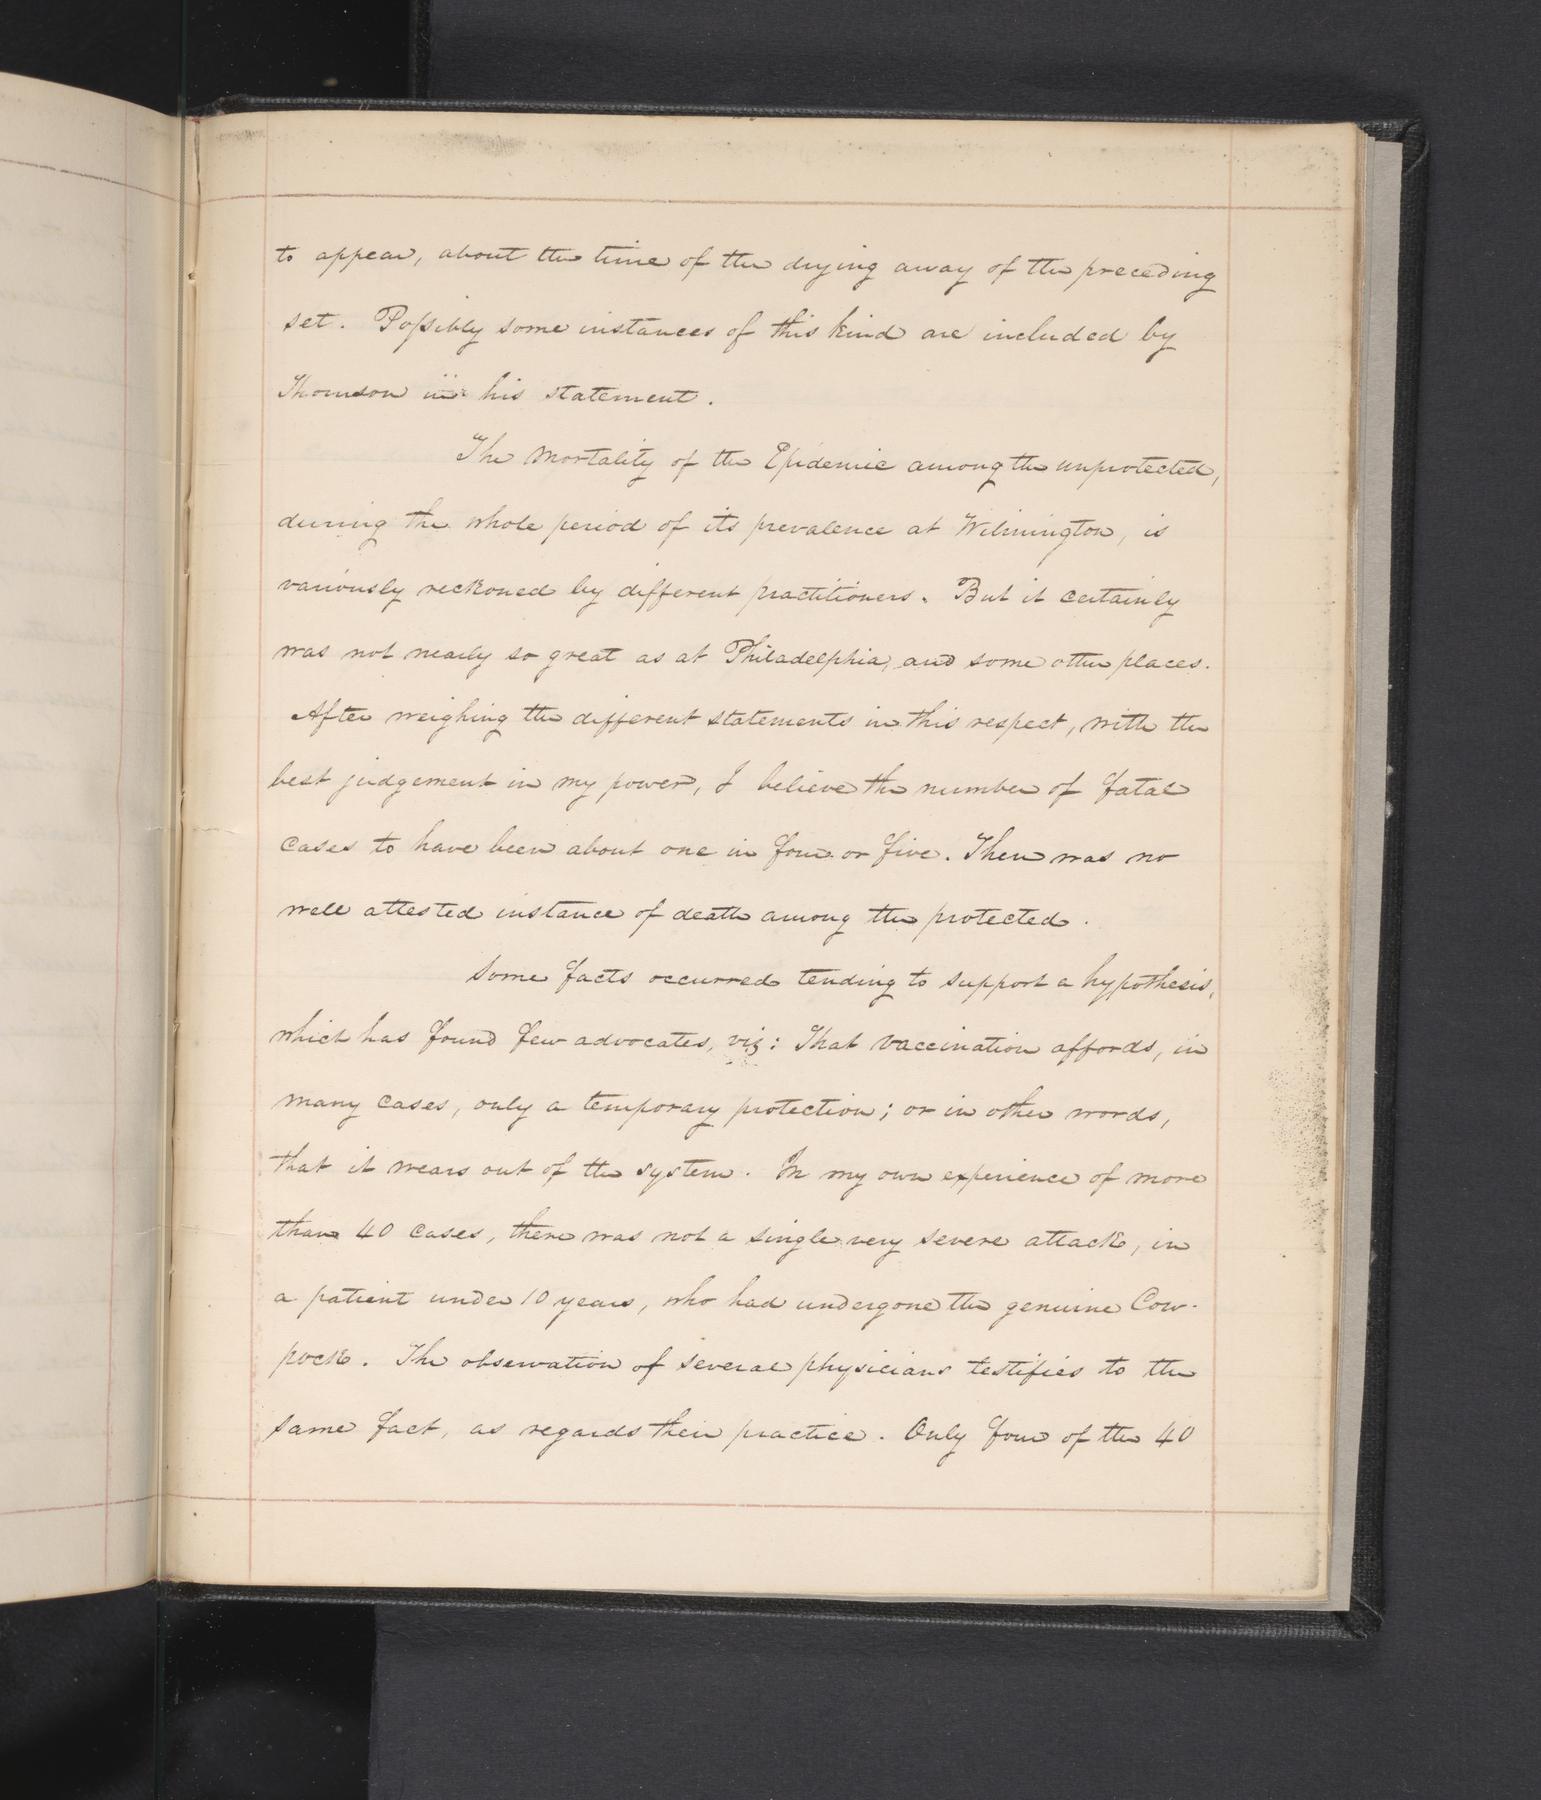 to appear, about the time of the drying away of the preceding
set. Poſsibly some instances of this kind are included by
Thomson in his statement.
The mortality of the Epidemic among the unprotected,
during the whole period of its prevalence at Wilmington, is
variously reckoned by different practitioners. But it certainly
was not nearly so great as at Philadelphia, and some other places.
After weighing the different statements in this respect, with the
best judgement in my power, I believe the number of fatal
cases to have been about one in four or five. There was no
well attested instance of death among the protected.
Some facts occurred tending to support a hypothesis,
which has found few advocates, viz: That vaccination affords, in
many cases, only a temporary protection; or in other words,
that it wears out of the system. In my own experience of more
than 40 cases, there was not a single very severe attack, in
a patient under 10 years, who had undergone the genuine Cow-
pock. The observation of several physicians testifies to the
same fact, as regards their practice. Only four of the 40